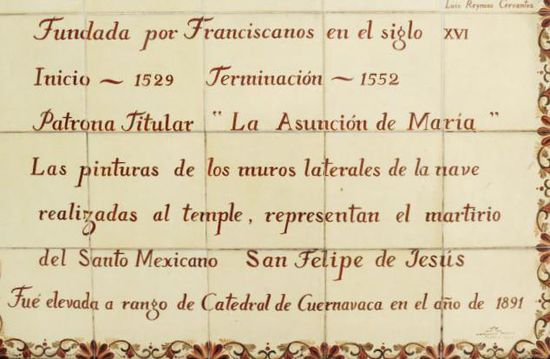 Luis Reynoso Cervantes
Fundada por Franciscanos en el siglo XVI
Inicio ~ 1529 Terminación ~ 1552
Patrona Titular " La Asunción de María "
Las pinturas de los muros laterales de la nave
realizadas al temple, representan el martirio
del Santo Mexicano San Felipe de Jesús
Fué elevada a rango de Catedral de Cuernavaca en el año de 1891